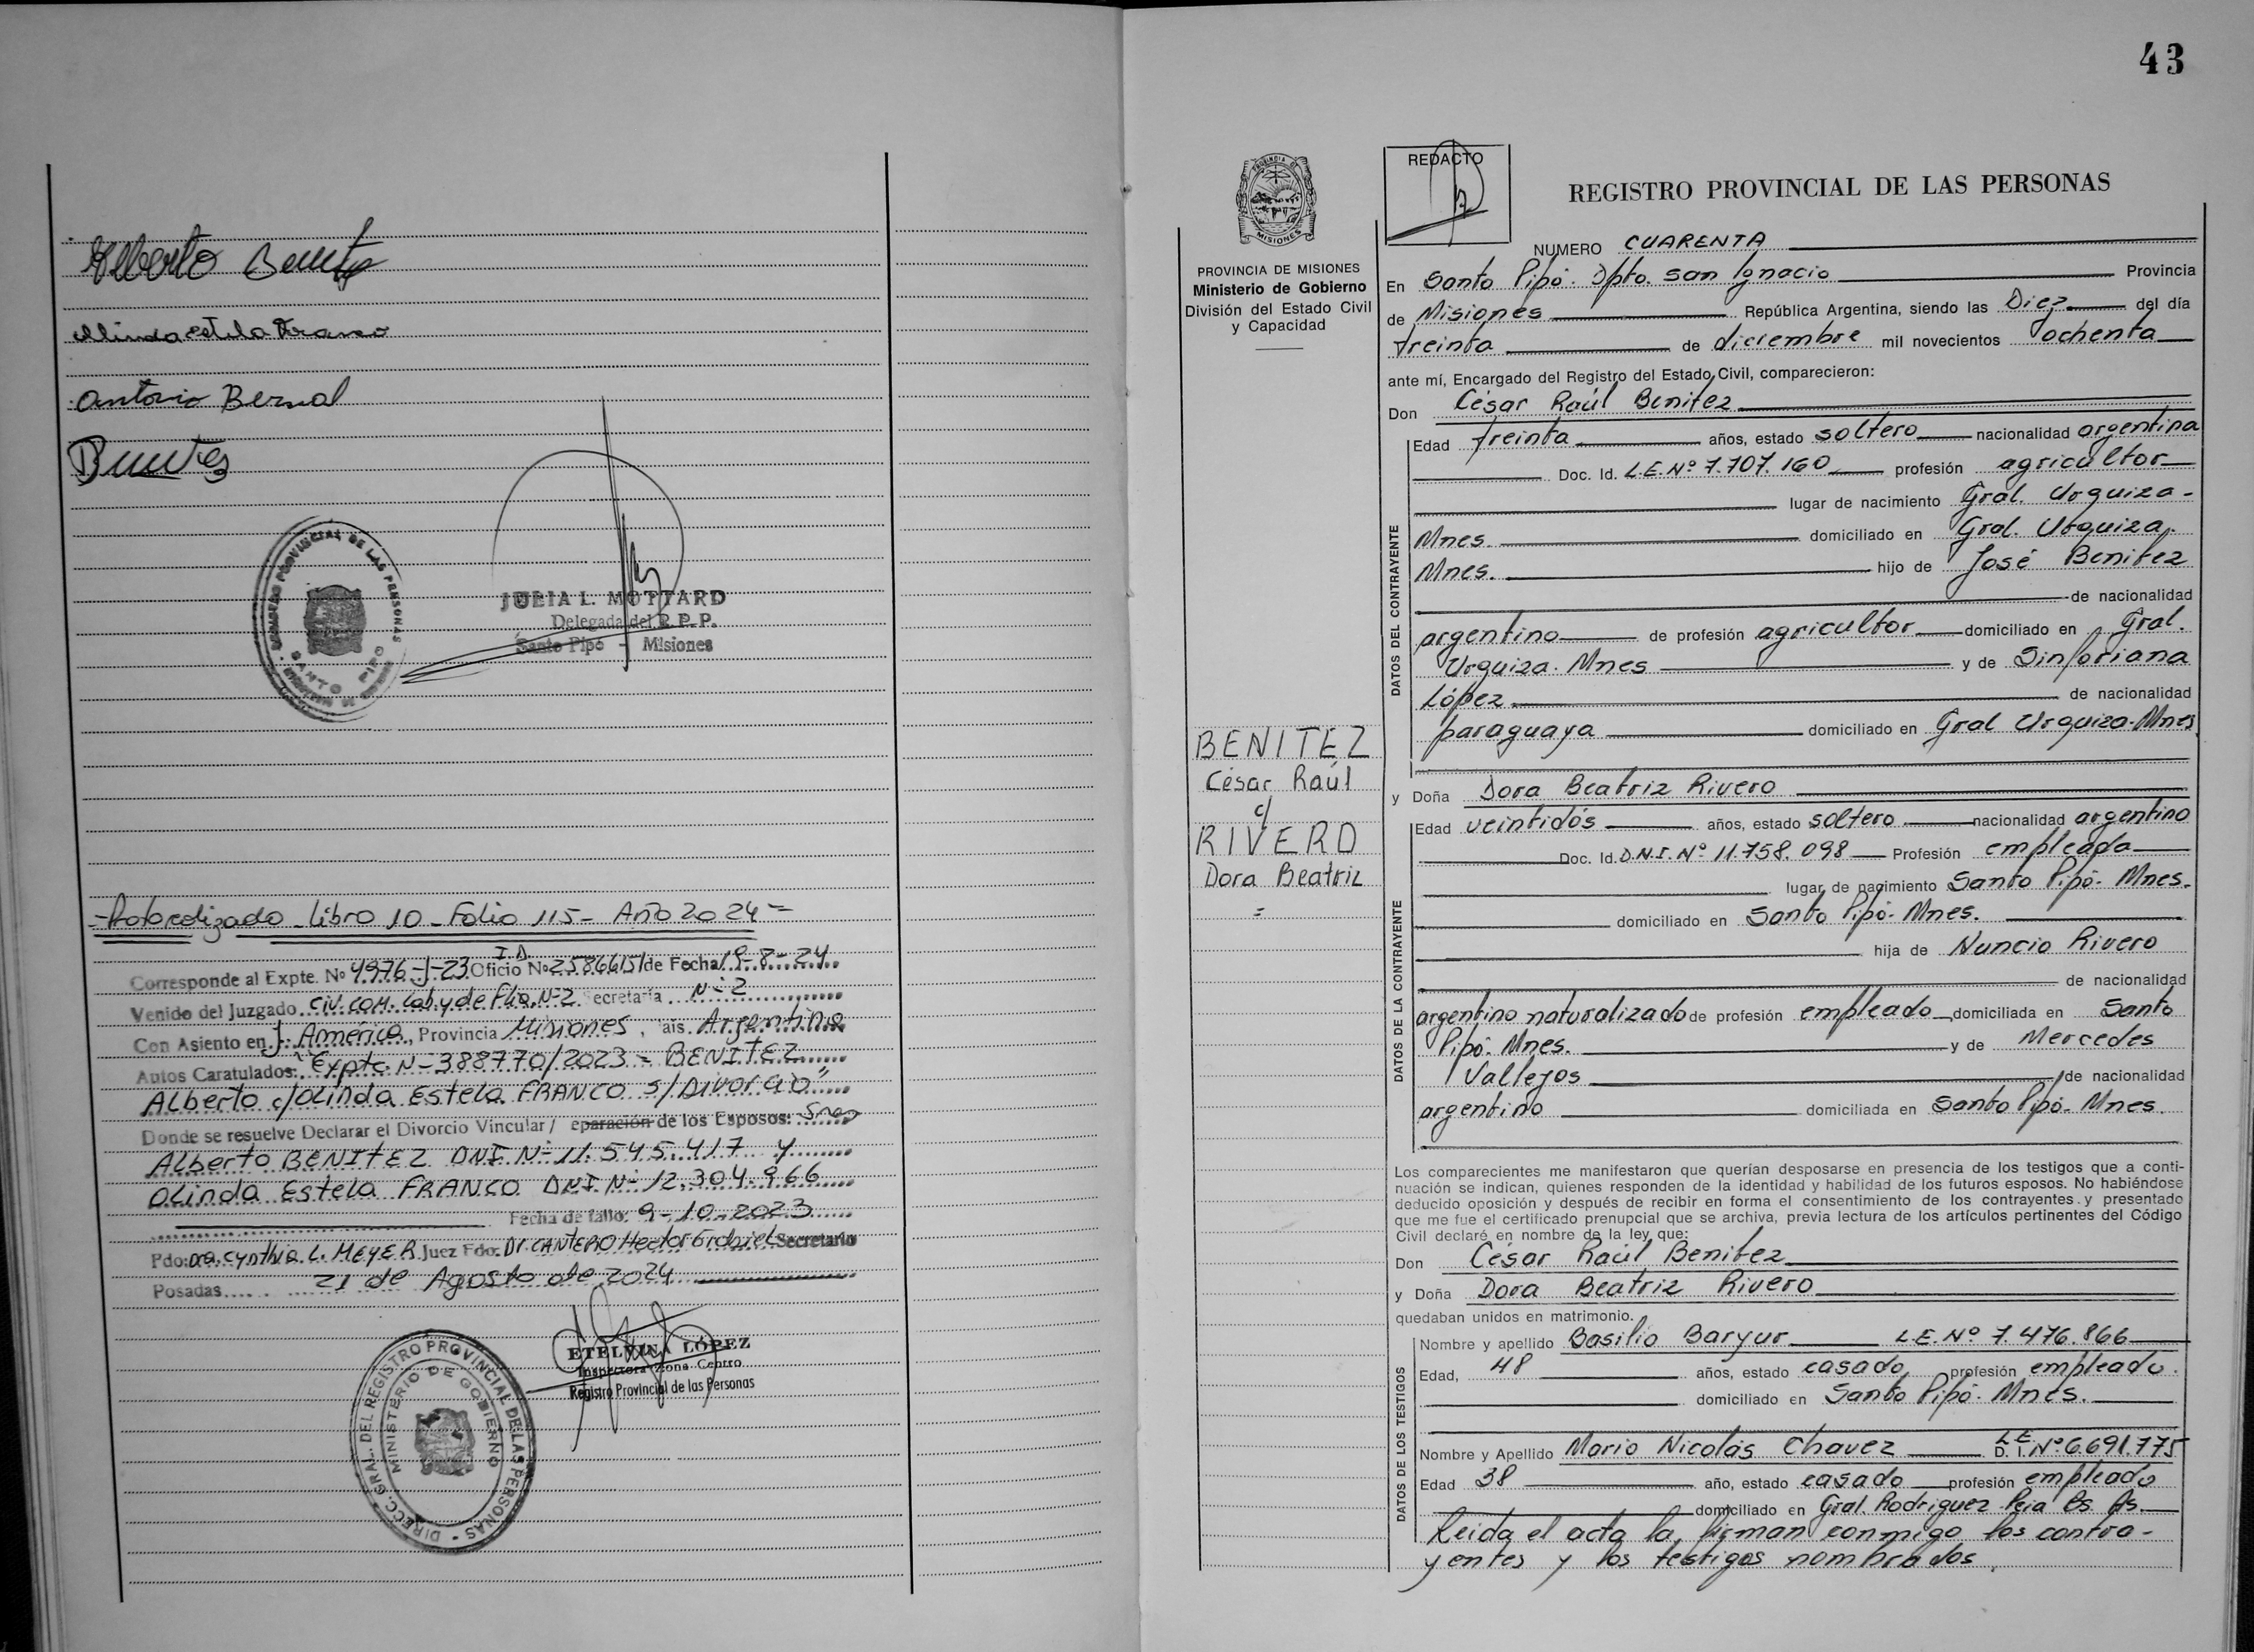 Alberto Benitez
Olinda Estela Franco
Antonio Bernal
REGISTRO PROVINCIAL DE LAS PERSONAS
SANTO PIPO
JULIA L. MOTTARD
Delegada del R. P. P.
Santo Pipó - Misiones
- Protocolizado Libro 10 - Folio 115 - Año 2024 =
I.D.
Corresponde al Expte. Nº 4976-J-23 Oficio Nº 25866151 de Fecha 19-8-24
Venido del Juzgado Civ. Com. Lab. y de Flia. Nº2 Secretaría Nº 2
Con Asiento en J. América, Provincia Misiones, País Argentina
Autos Caratulados: "Expte Nº 388770/2023 = BENITEZ
Alberto c/ Olinda Estela FRANCO s/ Divorcio"
Donde se resuelve Declarar el Divorcio Vincular / eparación de los Esposos: Sres
Alberto BENITEZ DNI Nº 11.545.417 y
Olinda Estela FRANCO DNI Nº 12.304.966
Fecha de fallo: 9-10-2023
Fdo: Dra. Cynthia L. MEYER Juez Fdo. Dr CANTERO Hector Gabriel Secretario
Posadas 21 de Agosto de 2024
ETELVINA LÓPEZ
Inspectora Zona Centro
Registro Provincial de las Personas
DIRECC. GRAL. DEL REGISTRO PROVINCIAL DE LAS PERSONAS -
MINISTERIO DE GOBIERNO
43
PROVINCIA DE
MISIONES
PROVINCIA DE MISIONES
Ministerio de Gobierno
División del Estado Civil
y Capacidad
BENITEZ
César Raúl
c/
RIVERO
Dora Beatriz
=
REDACTO
REGISTRO PROVINCIAL DE LAS PERSONAS
NUMERO CUARENTA
En Santo Pipó. Dpto. San Ignacio Provincia
de Misiones República Argentina, siendo las Diez del día
treinta de diciembre mil novecientos ochenta
ante mí, Encargado del Registro del Estado Civil, comparecieron:
Don César Raúl Benitez
DATOS DEL CONTRAYENTE
Edad treinta años, estado soltero nacionalidad argentina
Doc. Id. L.E. Nº 7.707.160 profesión agricultor
lugar de nacimiento Gral. Urquiza -
Mnes. domiciliado en Gral. Urquiza.
Mnes. hijo de José Benitez
de nacionalidad
argentino de profesión agricultor domiciliado en Gral.
Urquiza. Mnes y de Sinforiana
López de nacionalidad
paraguaya domiciliado en Gral Urquiza-Mnes
y Doña Dora Beatriz Rivero
DATOS DE LA CONTRAYENTE
Edad veintidós años, estado soltero nacionalidad argentino
Doc. Id. D.N.I. Nº 11.758.098 Profesión empleada
lugar de nacimiento Santo Pipó- Mnes.
domiciliado en Santo Pipó- Mnes.
hija de Nuncio Rivero
de nacionalidad
argentino naturalizado de profesión empleado domiciliada en Santo
Pipó- Mnes. y de Mercedes
Vallejos de nacionalidad
argentino domiciliada en Santo Pipó- Mnes.
Los comparecientes me manifestaron que querían desposarse en presencia de los testigos que a conti-
nuación se indican, quienes responden de la identidad y habilidad de los futuros esposos. No habiéndose
deducido oposición y después de recibir en forma el consentimiento de los contrayentes y presentado
que me fue el certificado prenupcial que se archiva, previa lectura de los artículos pertinentes del Código
Civil declaré en nombre de la ley que:
Don César Raúl Benitez
y Doña Dora Beatriz Rivero
quedaban unidos en matrimonio.
DATOS DE LOS TESTIGOS
Nombre y apellido Basilio Baryur L.E. Nº 7.476.866
Edad, 48 años, estado casado profesión empleado.
domiciliado en Santo Pipó- Mnes.
Nombre y Apellido Mario Nicolás Chavez L.E. D. I. Nº 6.691.775
Edad 38 año, estado casado profesión empleado
domiciliado en Gral. Rodriguez Bs. As.
Leida el acta la firman conmigo los contra-
yentes y los testigos nombrados.